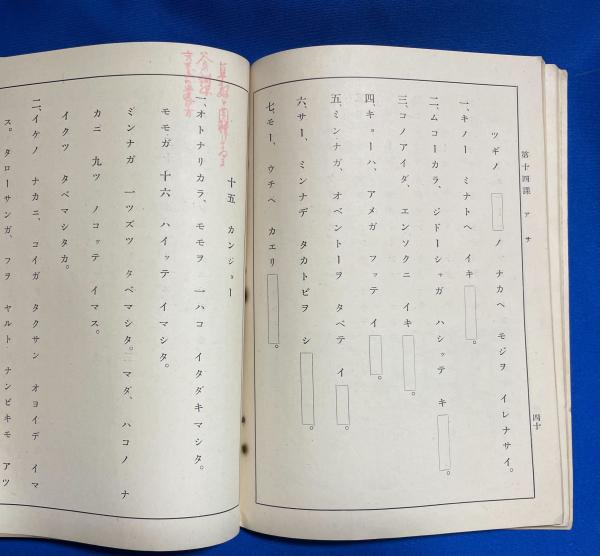 第十四課　アサ
四十
ツギノ □ ノ ナカヘ モジヲ イレナサイ。
一、キノー ミナトヘ イキ□。
二、ムコーカラ、ジドーシャガ ハシッテ キ□。
三、コノアイダ、エンソクニ イキ□。
四、キョーハ、アメガ フッテ イ□。
五、ミンナガ、オベントーヲ タベテ イ□。
六、サー、ミンナデ タカトビヲ シ□。
七、モー、ウチヘ カエリ□。
十五　カンジョー
一、オトナリカラ、モモヲ 一ハコ イタダキマシタ。
モモガ 十六 ハイッテ イマシタ。
ミンナガ 一ツズツ タベマシタ。マダ、ハコノ ナ
カニ 九ツ ノコッテ イマス。
イクツ タベマシタカ。
二、イケノ ナカニ、コイガ タクサン オヨイデ イマ
ス。タローサンガ、フヲ ヤルト ナンビキモ アツ